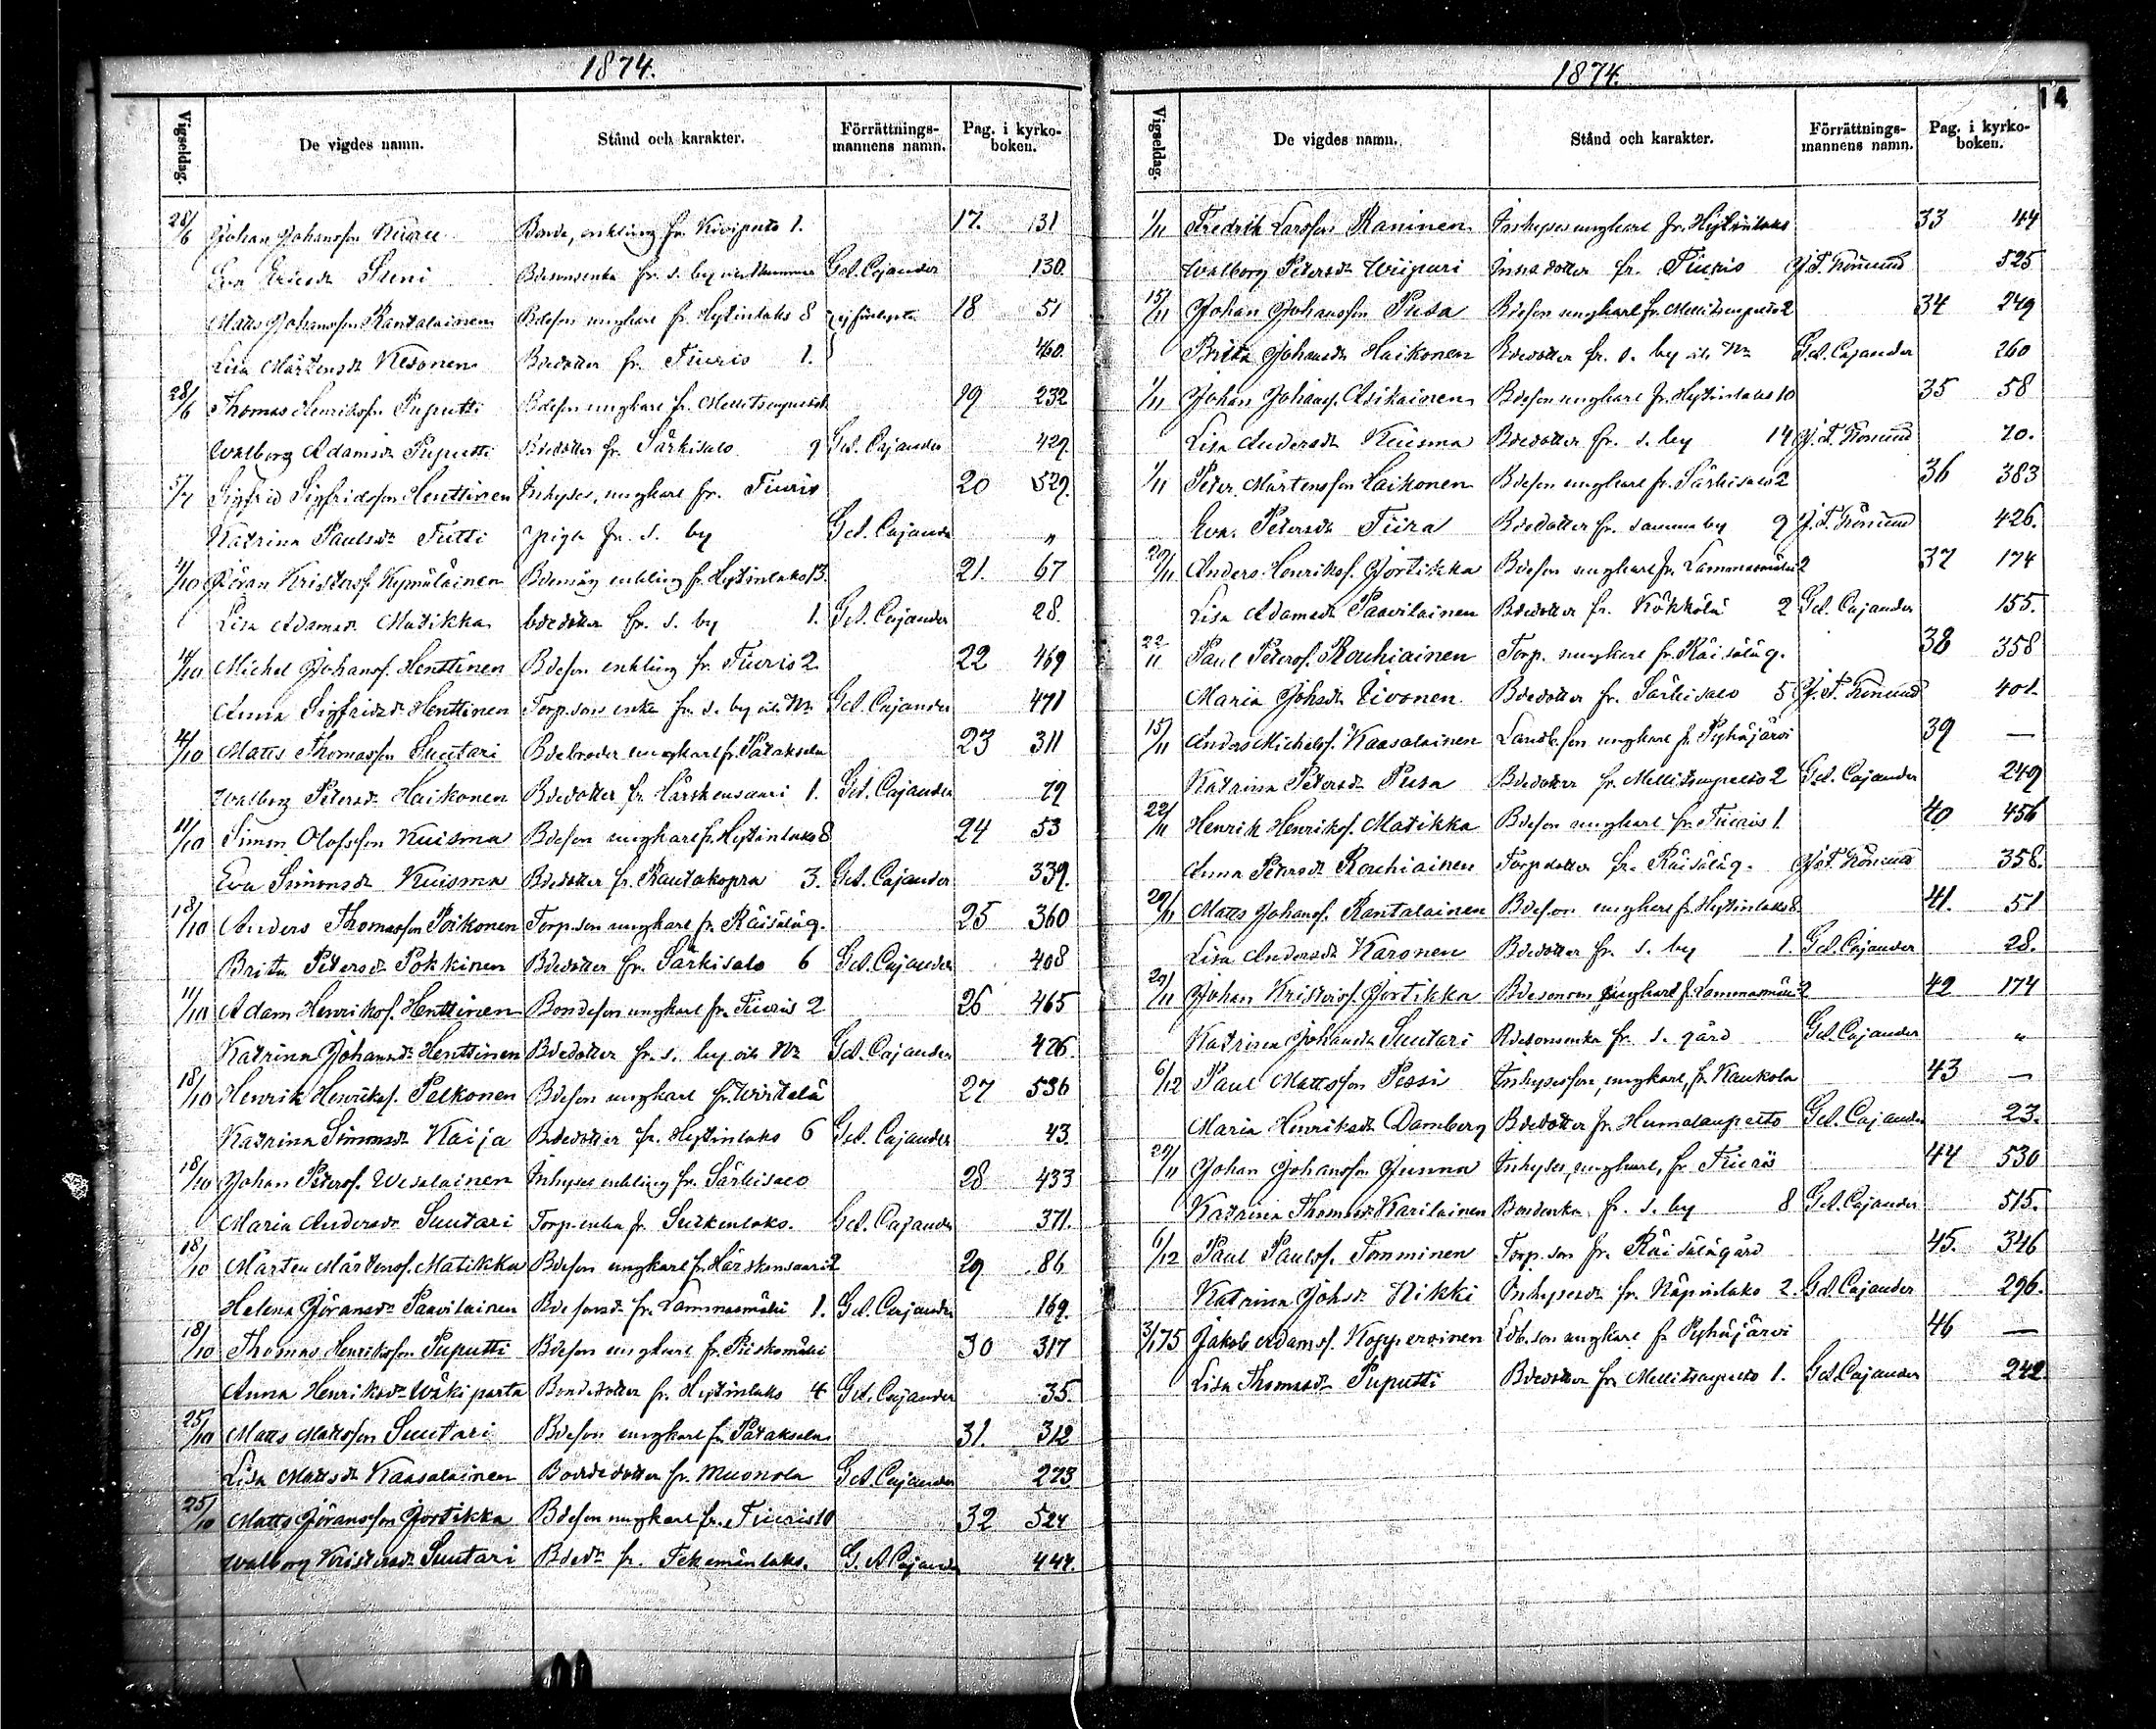 1874.
Vigseldag. De vigdes namn. Stånd och karakter. Förrättningsmannens namn. Pag. i kyrkoboken.
28/6 Johan Johansson Kuuru Bonde, enkling fr. Kiviputo 1. 17. 131
Eva Ericsdr Sseni Bdesonsenka fr. s. by Gd. Cajander 130.
Matts Johansson Rantalainen Bdeson ungkarl fr. Hytinlaks 8 18 51
Lisa Mårtensdr Kesonen Bdedotter fr. Tiuris 1. 460.
28/6 Thomas Henriksson Puputti Bdeson ungkarl fr. Mellitsenpelto 19 232
Walborg Adamsdr Puputti Bdedotter fr. Särkisalo 9 Gd. Cajander 429.
5/7 Sigfrid Sigfridsson Henttinen Inhyses, ungkarl fr. Tiuris 20 529.
Katrina Paulsdr Tutti piga fr. s. by Gd. Cajander "
4/10 Göran Kristersf. Kymäläinen Bdemåg enkling fr. Hytinlaks 13. 21. 67
Lisa Adamsdr Matikka bdedotter fr. s. by 1. Gd. Cajander 28.
4/10 Michel Johansf. Henttinen Bdeson enkling fr. Tiuris 2 22 469
Anna Sigfridsdr Henttinen Torp.sons enka fr. s. by o. No Gd. Cajander 471
4/10 Matts Thomasson Suutari Bdebroder ungkarl fr. Pataksela 23 311
Walborg Petersdr Haikonen Bdedotter fr. Härskensaari 1. Gd. Cajander 79
11/10 Simon Olofsson Kuisma Bdeson ungkarl fr. Hytinlaks 8 24 53
Eva Simonsdr Kuisma Bdedotter fr. Rautakopra 3. Gd. Cajander 339.
18/10 Anders Thomasson Poikonen Torp.son ungkarl fr. Räisäläg. 25 360
Brita Petersdr Pokkinen Bdedotter fr. Särkisalo 6 Gd. Cajander 408
11/10 Adam Henriksf. Henttinen Bondeson ungkarl fr. Tiuris 2 26 465
Katrina Johansdr Henttinen Bdedotter fr. s. by o. No Gd. Cajander 426.
18/10 Henrik Henriksf. Pelkonen Bdeson ungkarl fr. Wirtelä 27 536
Katrina Simonsdr Kaija Bdedotter fr. Hytinlaks 6 Gd. Cajander 43.
18/10 Johan Petersf. Wesalainen Inhyses enkling fr. Särkisalo 28 433
Maria Andersdr Suutari Torp.enka fr. Suikenlaks. Gd. Cajander 371.
18/10 Mårten Mårtensf. Matikka Bdeson ungkarl fr. Härskensaari 2 29 86
Helena Göransdr Paavilainen Bdesonsdr fr. Lammasmäki 1. Gd. Cajander 169.
18/10 Thomas Henriksson Puputti Bdeson ungkarl fr. Piiskomäki 30 317
Anna Henriksdr Wäkiparta Bondedotter fr. Hytinlaks 4 Gd. Cajander 35.
25/10 Matts Mattsson Suutari Bdeson ungkarl fr. Pataksela 31. 312
Lisa Mattsdr Kaasalainen Bondedotter fr. Muonola Gd. Cajander 273
25/10 Matts Göransson Jortikka Bdeson ungkarl fr. Tiuris 10 32 524
Walborg Kristersdr Suutari Bdedr fr. Tehemänlaks. G. A Cajander 444.
1874.
14
Vigseldag. De vigdes namn. Stånd och karakter. Förrättningsmannens namn. Pag. i kyrkoboken.
1/11 Fredrik Larsson Raninen Inhyses ungkarl fr. Hytinlaks 33 44
Walborg Petersdr Wiipuri Inh.dotter fr. Tiuris 525
15/11 Johan Johansson Pusa Bdeson ungkarl fr. Mellitsenpelto 2 34 249
Brita Johansdr Haikonen Bdedotter fr. s. by o. No Gd. Cajander 260
1/11 Johan Johansf. Asikainen Bdeson ungkarl fr. Hytinlaks 10 35 58
Lisa Andersdr Kuisma Bdedotter fr. s. by 14 70.
1/11 Peter Mårtensson Laikonen Bdeson ungkarl fr. Särkisalo 2 36 383
Eva Petersdr Tiira Bdedotter fr. samma by 9 426.
29/11 Anders Henriksf. Jortikka Bdeson ungkarl fr. Lammasmäki 2 37 174
Lisa Adamsdr Paavilainen Bdedotter fr. Kökkölä 2 Gd. Cajander 155.
22/11 Paul Petersf. Rouhiainen Torp. ungkarl fr. Räisäläg. 38 358
Maria Johsdr Tivonen Bdedotter fr. Särkisalo 5 401.
15/11 Anders Michelsf. Kaasalainen Landb.son ungkarl fr. Pyhäjärvi 39 —
Katrina Petersdr Pusa Bdedotter fr. Mellitsenpelto 2 Gd. Cajander 249
22/11 Henrik Henriksf. Matikka Bdeson ungkarl fr. Tiuris 1. 40 456
Anna Petersdr Rouhiainen Torp.dotter fr. Räisäläg. 358.
29/11 Matts Johansf. Rantalainen Bdeson ungkarl fr. Hytinlaks 8. 41. 51
Lisa Andersdr Karonen Bdedotter fr. s. by 1. Gd. Cajander 28.
29/11 Johan Kristersf. Jortikka Bdesonson ungkarl fr. Lammasmäki 2 42 174
Katrina Johansdr Suutari Bdesonsenka fr. s. gård Gd. Cajander "
6/12 Paul Mattsson Pessi Inhysesson, ungkarl, fr. Kaukola 43 —
Maria Henriksdr Damberg Bdedotter fr. Humalanpelto Gd. Cajander 23.
29/11 Johan Johansson Junna Inhyses, ungkarl, fr. Tiuris 44 530
Katrina Thomasdr Karilainen Bondenka fr. s. by 8 Gd. Cajander 515.
6/12 Paul Paulsf. Tomminen Torp.son fr. Räisälägård 45. 346
Katrina Johsdr Nikki Inhysesdr fr. Näpinlaks 2. Gd. Cajander 296.
3/1 75 Jakob Adamsf. Kopperoinen Ldb.son ungkarl fr. Pyhäjärvi 46 —
Lisa Thomasdr Puputti Bdedotter fr. Mellitsenpelto 1. Gd. Cajander 242.